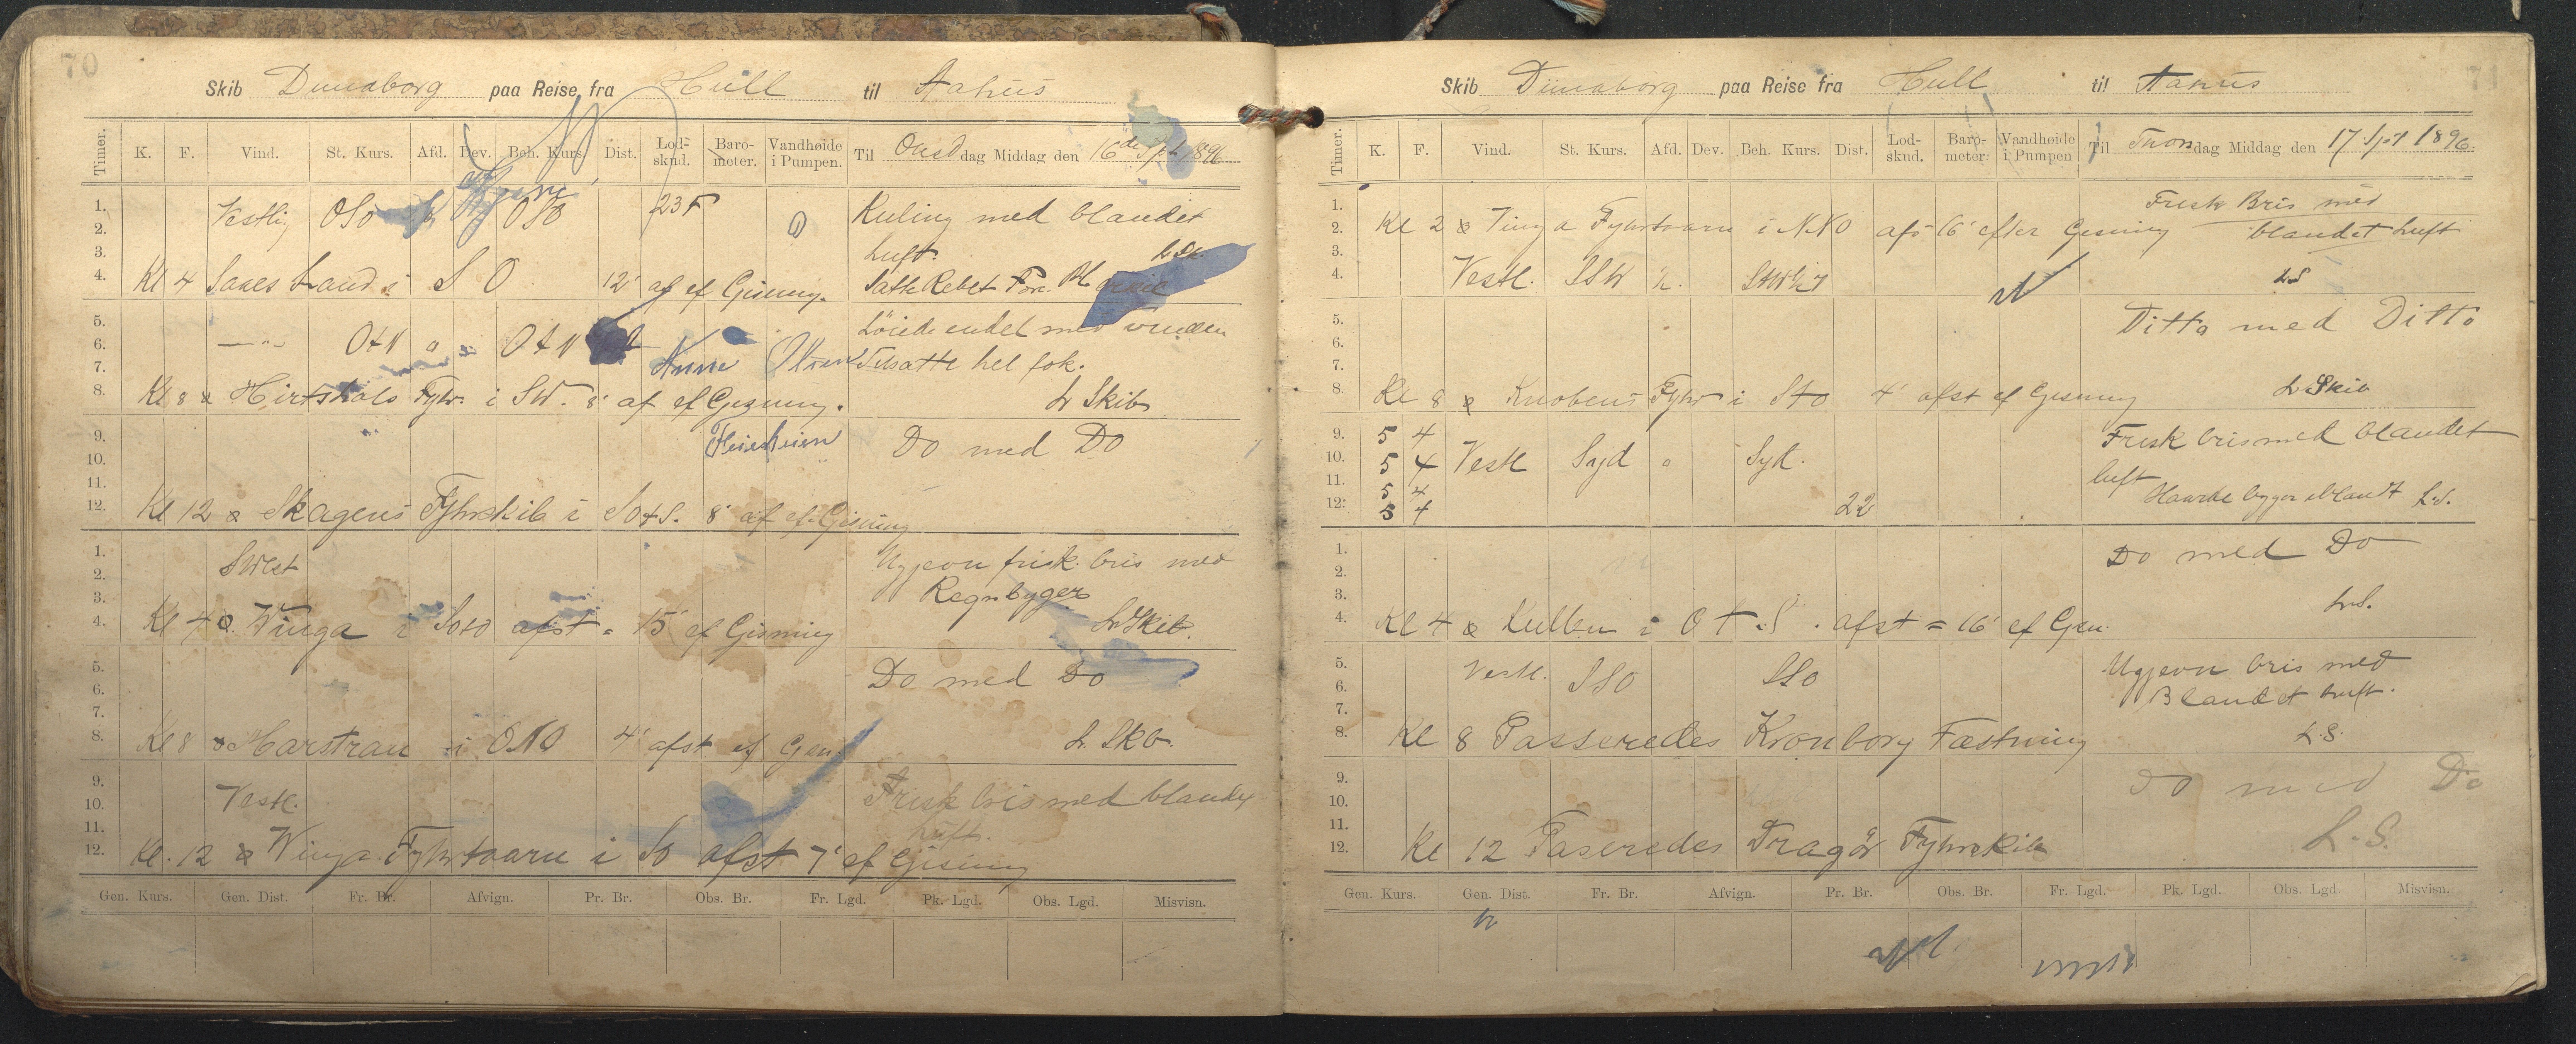 70
Skib Dunaborg paa Reise fra Hull til Aahus
Timer. K. F. Vind. St. Kurs. Afd. Dev. Beh. Kurs. Dist. Lod-skud. Baro-meter. Vandhøide i Pumpen. Til Onsd dag Middag den 16de Spt 1896
1.
2. Vestlig OSO OSO 23 F Kuling med blandet
3. Luft. L Sk.
4. Kl 4 Land i S O 12' af ef Gisning. Satte Rebet For.
5. Löiede endel med vinden
6. OtN o OtN
7. Anna Olsen Tilsatte hel fok.
8. Kl 8 Hirtshals Fyhr i SW. 8' af ef Gisning. L Skib
9. Do med Do
10.
11.
12. Kl 12 Skagens Fyhrskib i SotS. 8' af ef Gisning
1. Ugjevn frisk bris med
2. SWest
3. Regnbyger
4. Kl 4 Winga i Soto afst = 15' ef Gisning L Skib.
5. Do med Do
6.
7.
8. Kl 8 Marstran i ONO 4' afst ef Gisn. L. Skb.
9. Frisk bris med blandet
10. Vestl.
11. Luft.
12. Kl. 12 Winga Fyhrtaarn i So afst 7' ef Gisning
Gen. Kurs. Gen. Dist. Fr. Br. Afvign. Pr. Br. Obs. Br. Fr. Lgd. Pk. Lgd. Obs. Lgd. Misvisn.
71
Skib Dünaborg paa Reise fra Hull til Aahus
Timer. K. F. Vind. St. Kurs. Afd. Dev. Beh. Kurs. Dist. Lod-skud. Baro-meter. Vandhøide i Pumpen Til Thors dag Middag den 17 Spt 1896.
1. Frisk Bris med
2. Kl 2 Vinga Fyhrtaarn i NNO afs 16' efter Gisning blandet Luft
3.
4. Vestl. SSW L S
5. Ditto med Ditto
6.
7.
8. Kl 8 Knobens Fyhr i Sto 4' afst ef Gisning L Skib
9. 5 4 Frisk bris med blandet
10. 5 4 Vestl Syd o Syd.
11. 5 4 luft
12. 5 4 22 L.S.
1. Do med Do
2.
3. L.S.
4. Kl 4 Kullen i OtS. afst = 16' ef Gisn.
5. Vestl. SSO SSO Ugjevn bris med
6. Blandet Luft.
7.
8. Kl 8 Passeredes Kronborg Fæstning L.S.
9. Do med Do
10.
11.
12. Kl 12 Paseredes Dragör Fyhrskib L.S.
Gen. Kurs. Gen. Dist. Fr. Br. Afvign. Pr. Br. Obs. Br. Fr. Lgd. Pk. Lgd. Obs. Lgd Misvisn.